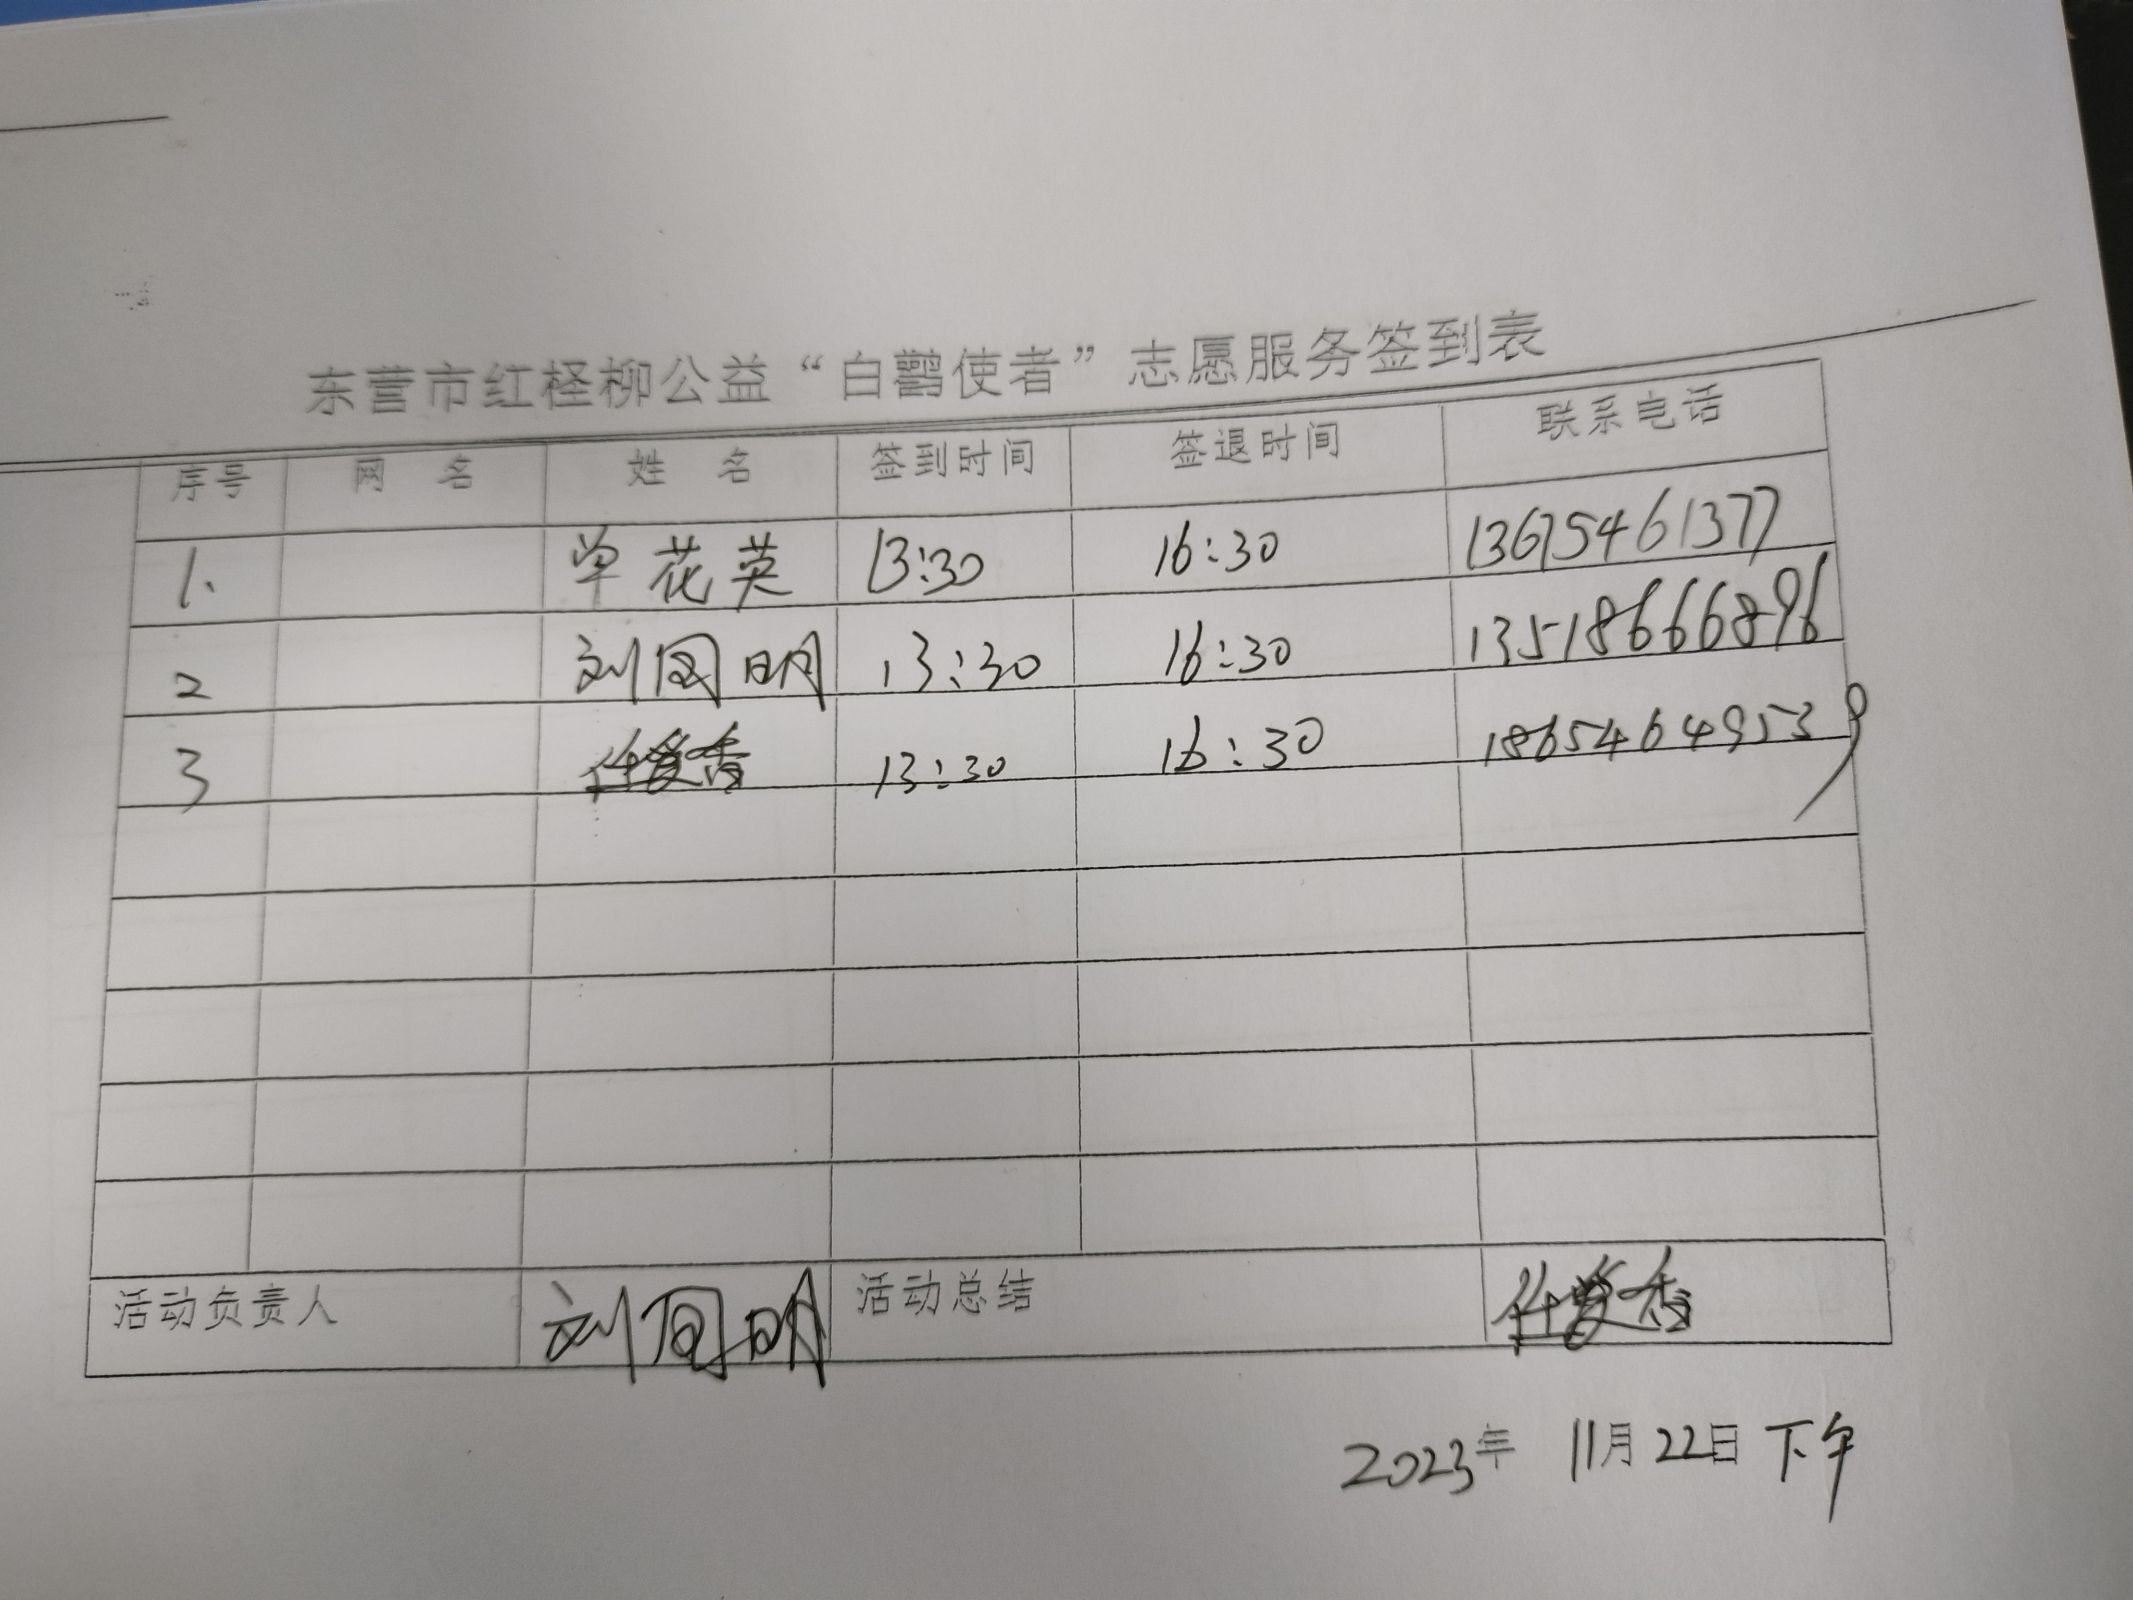 东营市红柽柳公益“白鹳使者”志愿服务签到表
序号 网 名 姓 名 签到时间 签退时间 联系电话
1. 单花英 13:30 16:30 13675461377
2 刘同明 13:30 16:30 13518666896
3 任爱香 13:30 16:30 18654649539
活动负责人 刘同明 活动总结 任爱香
2023年 11月22日 下午